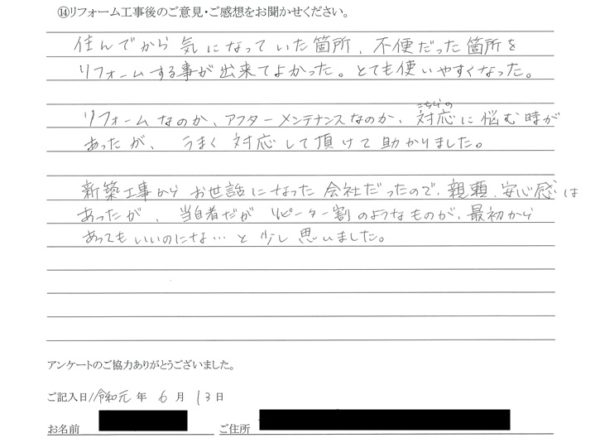 ⑭リフォーム工事後のご意見・ご感想をお聞かせください。
住んでから気になっていた箇所、不便だった箇所を
リフォームする事が出来てよかった。とても使いやすくなった。
リフォームなのか、アフターメンテナンスなのか、こちらの対応に悩む時が
あったが、うまく対応して頂けて助かりました。
新築工事からお世話になった会社だったので、親頼、安心感は
あったが、当自者だがリピーター割のようなものが、最初から
あってもいいのにな…と少し思いました。
アンケートのご協力ありがとうございました。
ご記入日//令和元年 6月 13日
お名前 ご住所